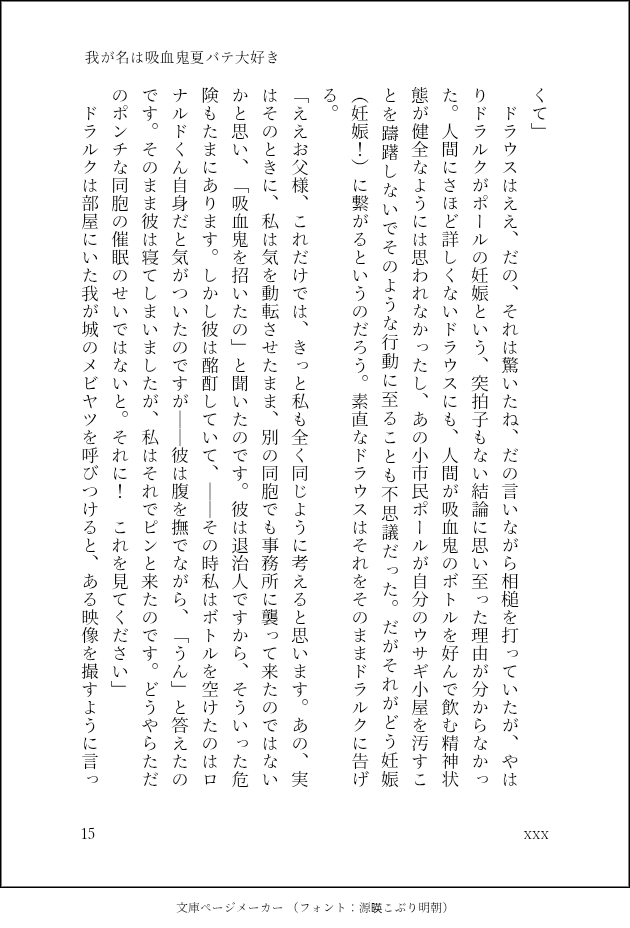 我が名は吸血鬼夏バテ大好き
くて」
　ドラウスはええ、だの、それは驚いたね、だの言いながら相槌を打っていたが、やは
りドラルクがポールの妊娠という、突拍子もない結論に思い至った理由が分からなかっ
た。人間にさほど詳しくないドラウスにも、人間が吸血鬼のボトルを好んで飲む精神状
態が健全なようには思われなかったし、あの小市民ポールが自分のウサギ小屋を汚すこ
とを躊躇しないでそのような行動に至ることも不思議だった。だがそれがどう妊娠
（妊娠！）に繋がるというのだろう。素直なドラウスはそれをそのままドラルクに告げ
る。
「ええお父様、これだけでは、きっと私も全く同じように考えると思います。あの、実
はそのときに、私は気を動転させたまま、別の同胞でも事務所に襲って来たのではない
かと思い、「吸血鬼を招いたの」と聞いたのです。彼は退治人ですから、そういった危
険もたまにあります。しかし彼は酩酊していて、――その時私はボトルを空けたのはロ
ナルドくん自身だと気がついたのですが――彼は腹を撫でながら、「うん」と答えたの
です。そのまま彼は寝てしまいましたが、私はそれでピンと来たのです。どうやらただ
のポンチな同胞の催眠のせいではないと。それに！　これを見てください」
　ドラルクは部屋にいた我が城のメビヤツを呼びつけると、ある映像を撮すように言っ
15
xxx
文庫ページメーカー（フォント：源暎こぶり明朝）